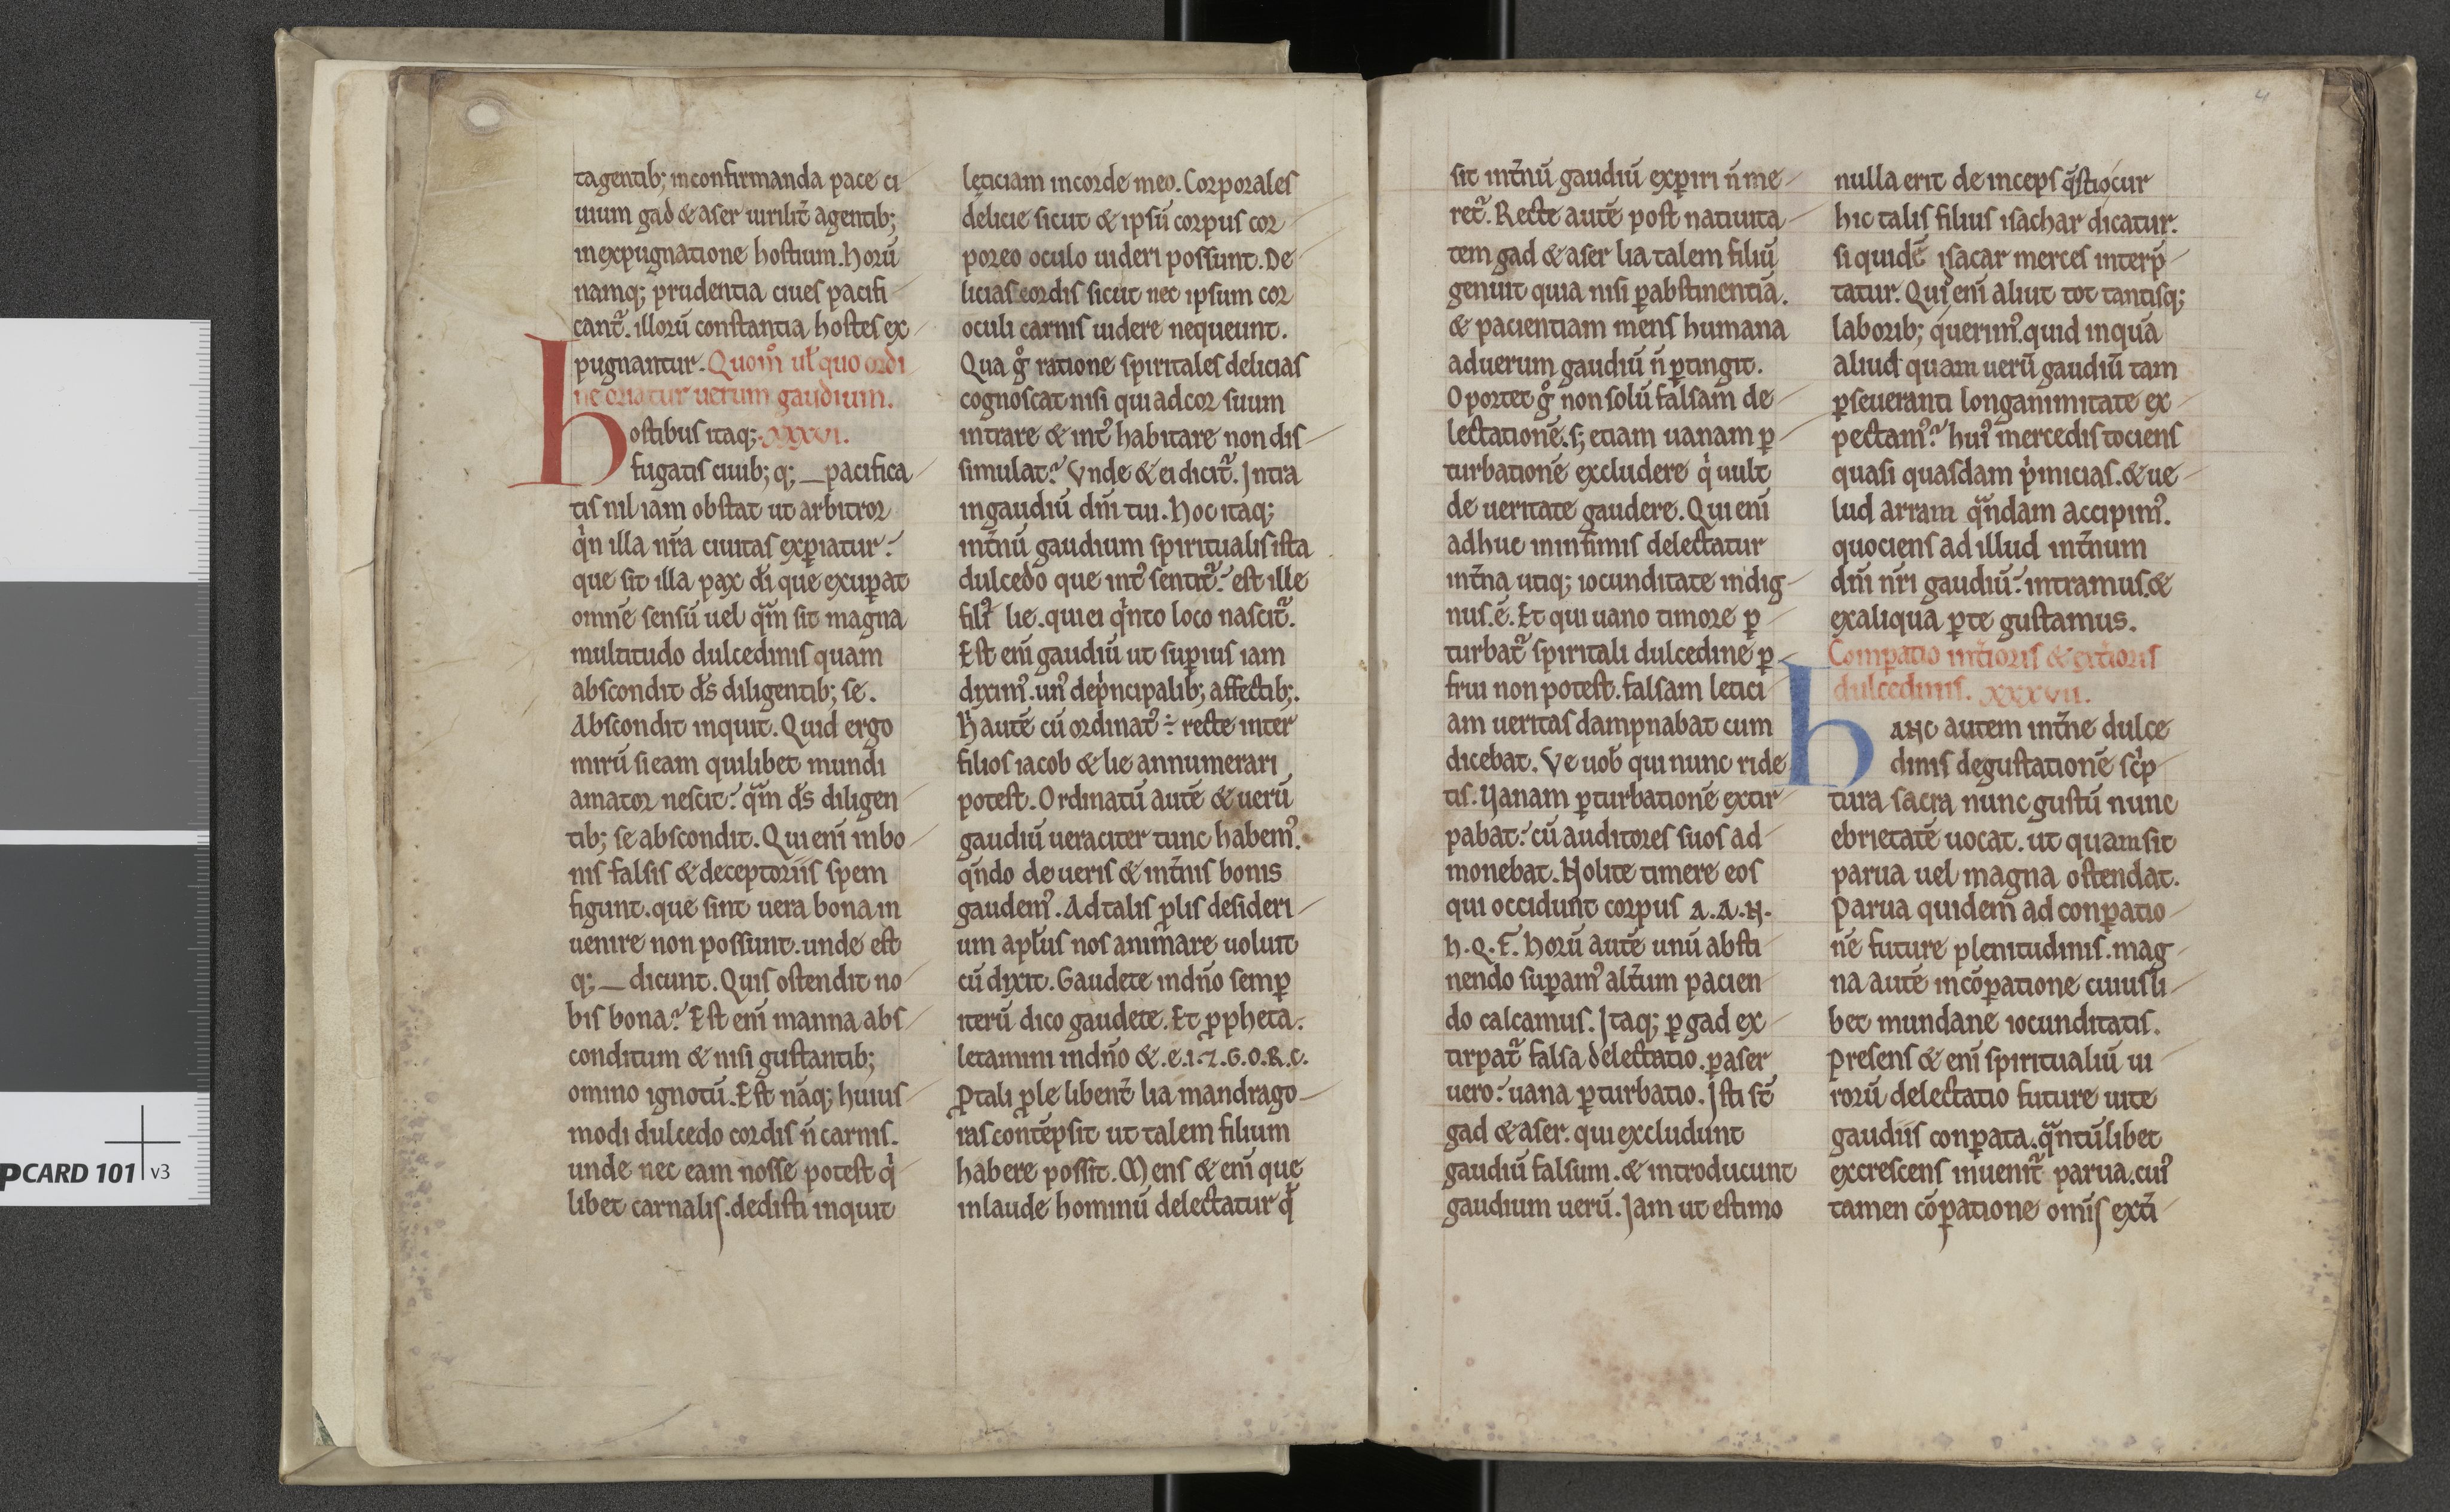 tagentib; inconfirmanda pace ci
uium gad & aser uirilit̃ agentib;
inexpugnatione hostium. horū
namq; prudentia ciues pacifi
cant᷑. illorū constantia hostes ex
pugnantur. Quom̊ ul̵ quo ordi
ne oriatur uerum gaudium.
hostibus itaq; xxxvi.
fugatis ciuib; q; _ pacifica
tis nil iam obstat ut arbitror
qͥn illa nr̃a ciuitas exꝑiatur.
que sit illa pax dī que exuꝑat
omnē sensū uel qͣm sit magna
multitudo dulcedinis quam
abscondit d̄s diligentib; se.
Abscondit inquit. Quid ergo
mirū si eam quilibet mundi
amator nescit? qͣm d̄s diligen
tib; se abscondit. Qui enī inbo
nis falsis & deceptoriis spem
figunt. que sint uera bona in
uenire non possunt. unde est
q; _ dicunt. Quis ostendit no
bis bona? Est enī manna abs
conditum & nisi gustantib;
omino ignotū. Est nāq; huius
modi dulcedo cordis n̄ carnis.
unde nec eam nosse potest qͥ
libet carnalis. dedisti inquit
lęticiam incorde meo. Corporales
delicie sicut & ipsū corpus cor
poreo oculo uideri possunt. De
licias cordis sicut nec ipsum cor
oculi carnis uidere nequeunt.
Qua gͦ ratione spiritales delicias
cognoscat nisi qui adcor suum
intrare & intꝰ habitare non dis
simulat? Vnde & ei dicit᷑. Intra
ingaudiū dn̄i tui. hoc itaq;
int̃nū gaudium spiritualis ista
dulcedo que intꝰ sentit᷑. est ille
filiꝰ lie. qui ei qͥnto loco nascit᷑.
Est enī gaudiū ut suꝑius iam
diximꝰ. unꝰ depͥncipalib; affectib;.
hͥ autē cū ordinatꝰ ÷ recte inter
filios iacob & lie annumerari
potest. Ordinatū autē & uerū
gaudiū ueraciter tunc habemꝰ.
qͣndo de ueris & int̃nis bonis
gaudemꝰ. Adtalis ꝓlis desideri
um apl̵us nos animare uoluit
cū dixit. Gaudete indn̄o semꝑ
iterū dico gaudete. Et ꝓpheta.
letamini indn̄o &.e.i.⁊.G.O.R.C.
Ꝓtali ꝓle libent̃ lia mandrago
ras contēpsit ut talem filium
habere possit. Mens & enī que
inlaude hominū delectatur qđ
4
sit int̃nū gaudiū exꝑiri n̄ me
ret᷑. Recte autē post natiuita
tem gad & aser lia talem filiū
genuit quia nisi ꝑabstinentiā.
& pacientiam mens humana
aduerum gaudiū n̄ ꝑtingit.
Oportet gͦ non solū falsam de
lectationē. s; etiam uanam ꝑ
turbationē excludere qͥ uult
de ueritate gaudere. Qui enī
adhuc in infimis delectatur
int̃na utiq; iocunditate indig
nus. ē. Et qui uano timore ꝑ
turbat᷑ spiritali dulcedine ꝑ
frui non potest. falsam letici
am ueritas dampnabat cum
dicebat. Ve uob̄ qui nunc ride
tis. Vanam ꝑturbationē extir
pabat. cū auditores suos ad
monebat. Nolite timere eos
qui occidunt corpus A.A.N.
h.Q.F. horū autē unū absti
nendo suꝑamꝰ alt̃um pacien
do calcamus. Itaq; ꝑ gad ex
tirpat᷑ falsa delectatio. ꝑaser
uero. uana ꝑturbatio. Isti st̄
gad & aser. qui excludunt
gaudiū falsum. & introducunt
gaudium uerū. Iam ut estimo
nulla erit de inceps q̄stio cur
hic talis filius isachar dicatur.
si quidē isacar merces interp̄
tatur. Quid enī aliut tot tantisq;
laborib; querimꝰ. quid inquā
aliud quam uerū gaudiū tam
ꝑseueranti longanimitate ex
pectamꝰ? huiꝰ mercedis tociens
quasi quasdam pͥmicias. & ue
lud arram qͣndam accipimꝰ.
quociens ad illud int̃num
dn̄i nr̄i gaudiū. intramus. &
exaliqua ꝑte gustamus.
Comꝑatio int̃ioris & ext̃ioris
dulcedinis. xxxvii.
hANC autem int̃ne dulce
dinis degustationē scͥp
tura sacra nunc gustū nunc
ebrietatē uocat. ut quam sit
parua uel magna ostendat.
Parua quidem̄ ad conꝑatio
nē future plenitudinis. mag
na autē incōꝑatione cuiusli
bet mundane iocunditatis.
Presens & enī spiritualiū ui
rorū delectatio future uite
gaudiis conꝑata. qͣntūlibet
excrescens inuenit᷑ parua. cuiꝰ
tamen cōꝑatione omīs ext̃i